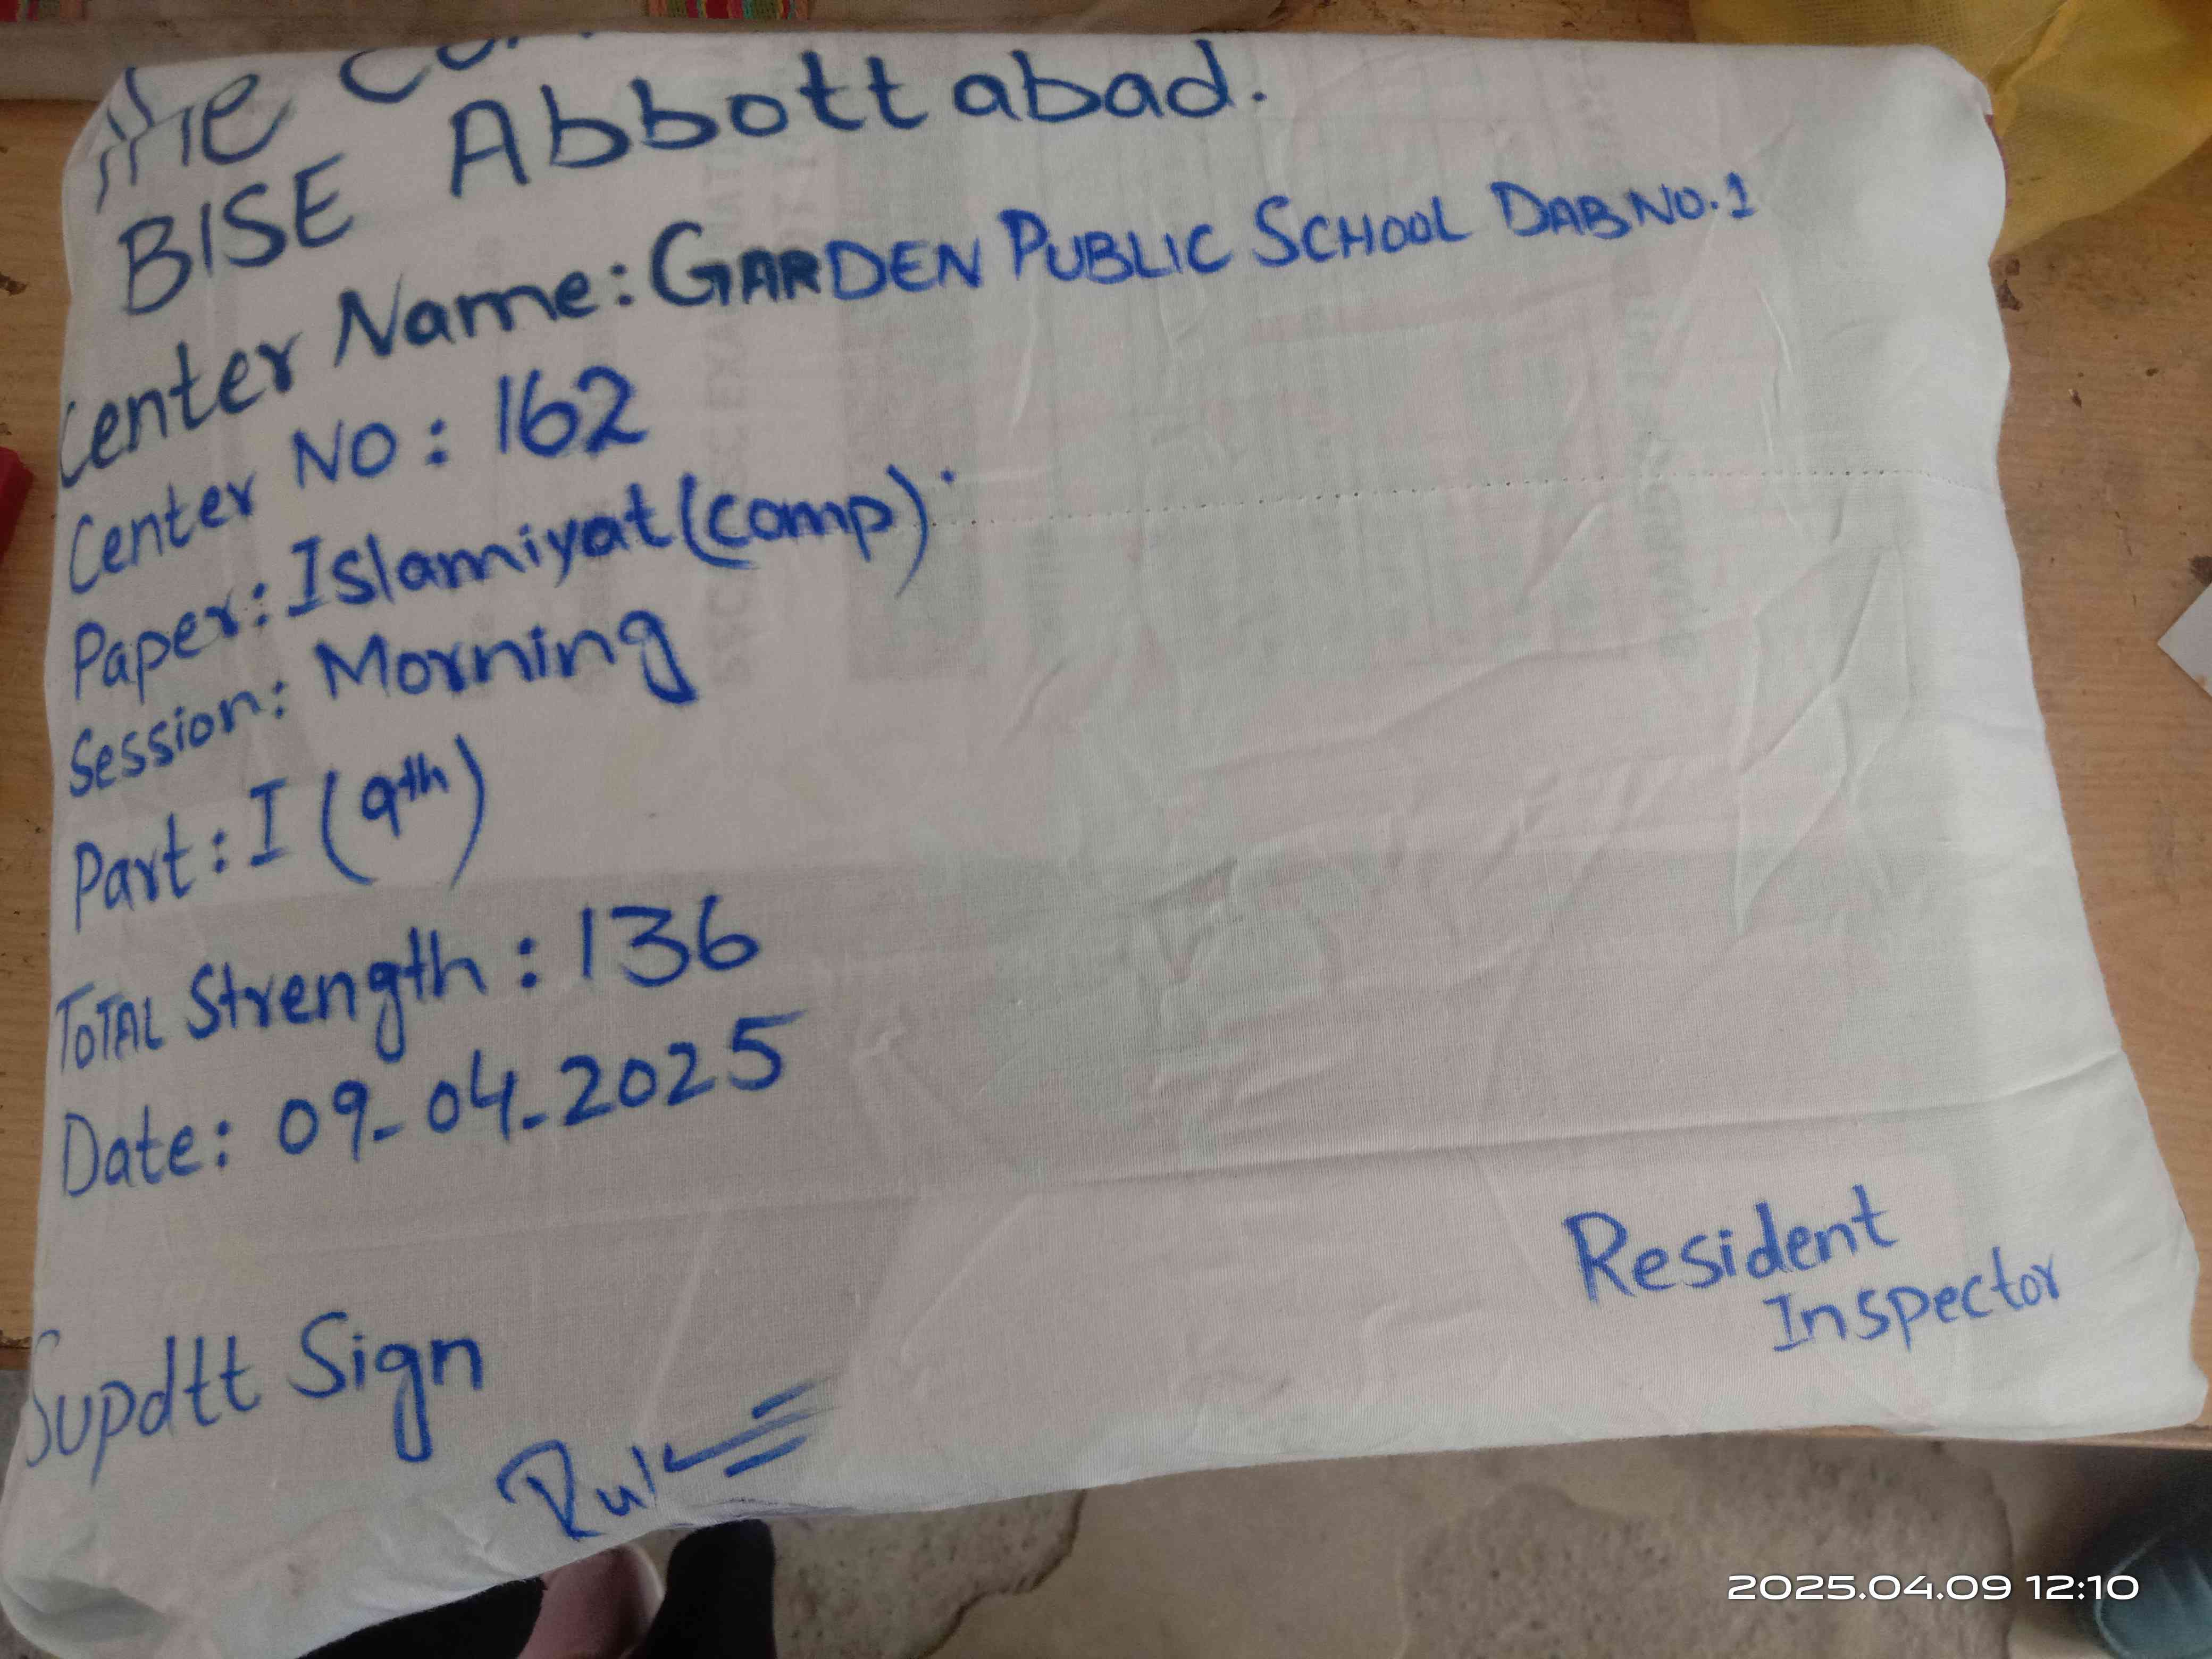 The
BISE Abbottabad.
Center Name: GARDEN PUBLIC SCHOOL DAB NO.1
Center NO: 162
Paper: Islamiyat (comp)
Session: Morning
Part: I (9th)
TOTAL Strength: 136
Date: 09-04-2025
Resident
Inspector
Supdtt Sign
2025.04.09 12:10